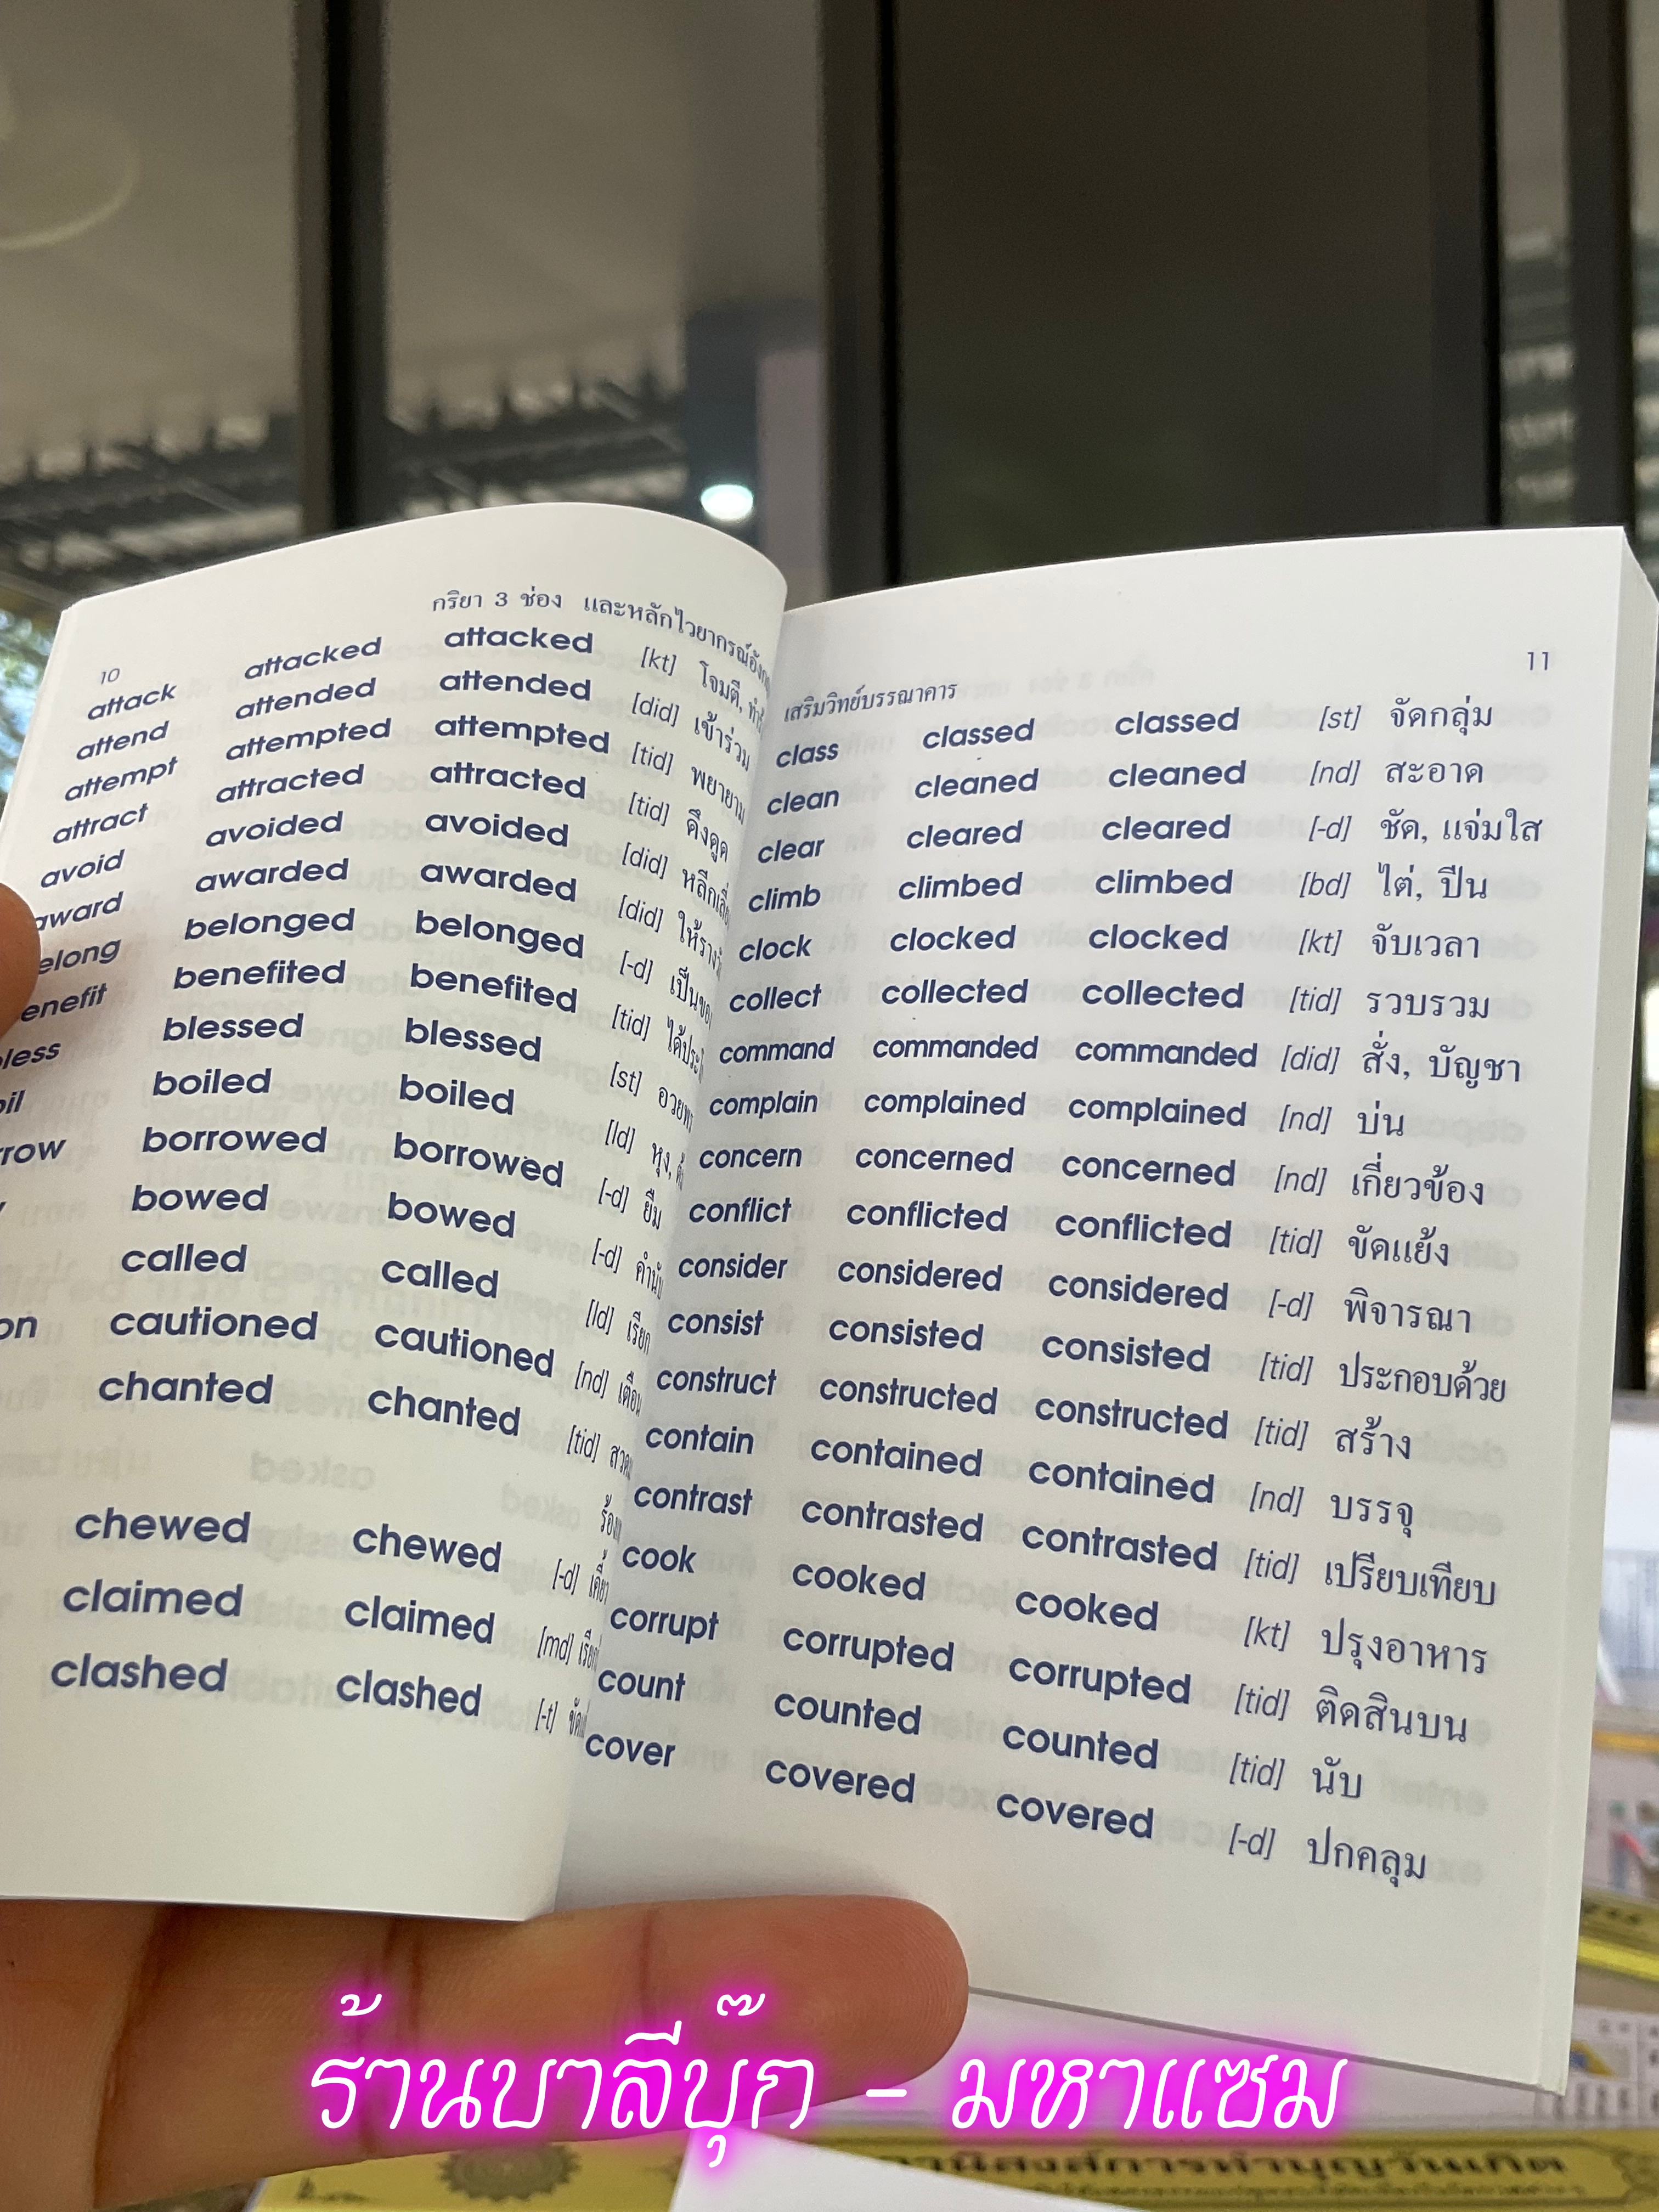 10
กริยา 3 ช่อง และหลักไวยากรณ์
attack attacked attacked [kt] โจมตี,
attend attended attended [did] เข้าร่วม
attempt attempted attempted [tid] พยายาม
attract attracted attracted [tid] ดึงดูด
avoid avoided avoided [did]
award awarded awarded [did]
belonged belonged [-d]
benefited benefited [tid]
blessed blessed [st]
boiled boiled [ld] หุง,
borrowed borrowed [-d] ยืม
bowed bowed [-d]
called called [ld] เรียก
cautioned cautioned [nd]
chanted chanted [tid]
chewed chewed [-d]
claimed claimed [md]
clashed clashed [-t]
เสริมวิทย์บรรณาคาร 11
class classed classed [st] จัดกลุ่ม
clean cleaned cleaned [nd] สะอาด
clear cleared cleared [-d] ชัด, แจ่มใส
climb climbed climbed [bd] ไต่, ปีน
clock clocked clocked [kt] จับเวลา
collect collected collected [tid] รวบรวม
command commanded commanded [did] สั่ง, บัญชา
complain complained complained [nd] บ่น
concern concerned concerned [nd] เกี่ยวข้อง
conflict conflicted conflicted [tid] ขัดแย้ง
consider considered considered [-d] พิจารณา
consist consisted consisted [tid] ประกอบด้วย
construct constructed constructed [tid] สร้าง
contain contained contained [nd] บรรจุ
contrast contrasted contrasted [tid] เปรียบเทียบ
cook cooked cooked [kt] ปรุงอาหาร
corrupt corrupted corrupted [tid] ติดสินบน
count counted counted [tid] นับ
cover covered covered [-d] ปกคลุม
ร้านบาลีบุ๊ก - มหาแซม